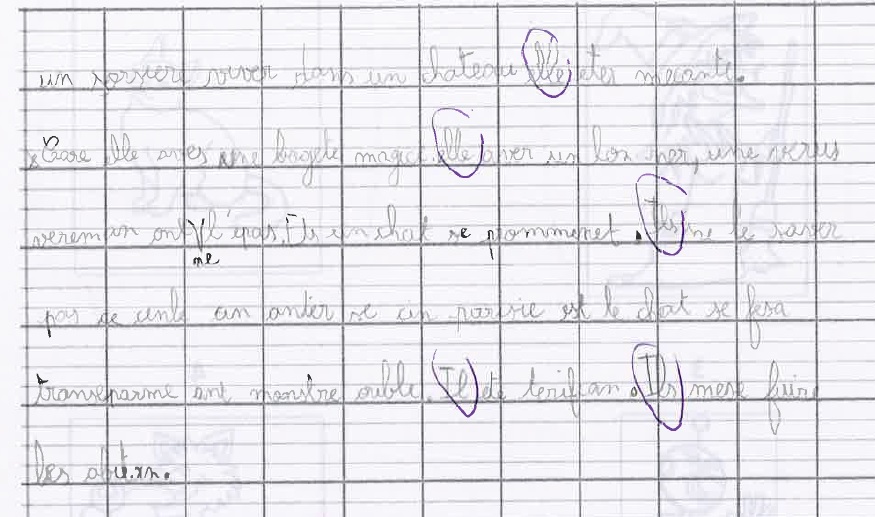 un sorsiere viver dans un chateau elle etes mecante.
Care elle aves une bagete magice. elle aver un lon ner, une verus
verem un ont ne l'épas. Ils un chat se pommenet. Ils ne le saver
pas se cunle un antier se un parsie est le chat se fesa
transparme ant monstre ouble. Il ete terifian. Ils mese fuire
les